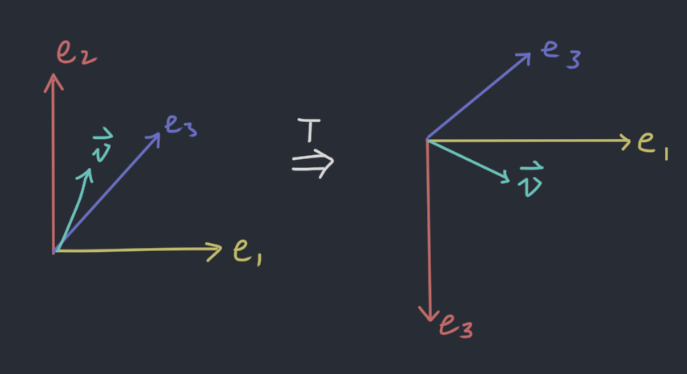 e₂
v⃗
e₃
e₁
T
⇒
e₃
e₁
v⃗
e₃